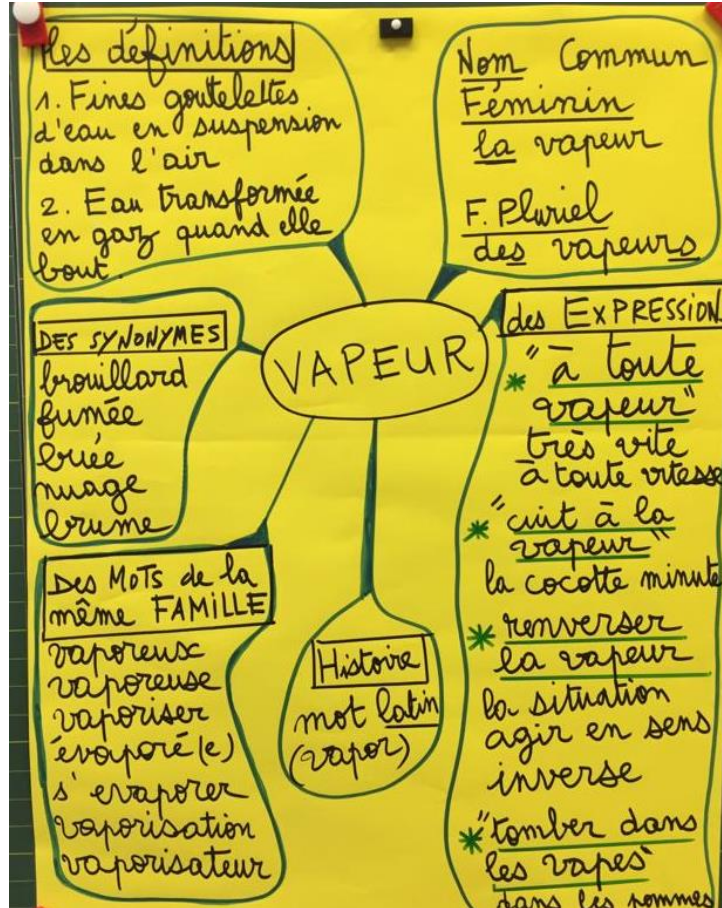 Les définitions
1. Fines goutelettes
d'eau en suspension
dans l'air
2. Eau transformée
en gaz quand elle
bout.
Nom Commun
Féminin
la vapeur
F. Pluriel
des vapeurs
VAPEUR
DES SYNONYMES
brouillard
fumée
buée
nuage
brume
des EXPRESSION
"à toute
vapeur"
très vite
à toute vitesse
"cuit à la
vapeur"
la cocotte minute
renverser
la vapeur
la situation
agir en sens
inverse
"tomber dans
les vapes"
dans les pommes
Des MoTs de la
même FAMiLLE
vaporeux
vaporeuse
vaporiser
évaporé(e)
s'evaporer
vaporisation
vaporisateur
Histoire
mot latin
(vapor)